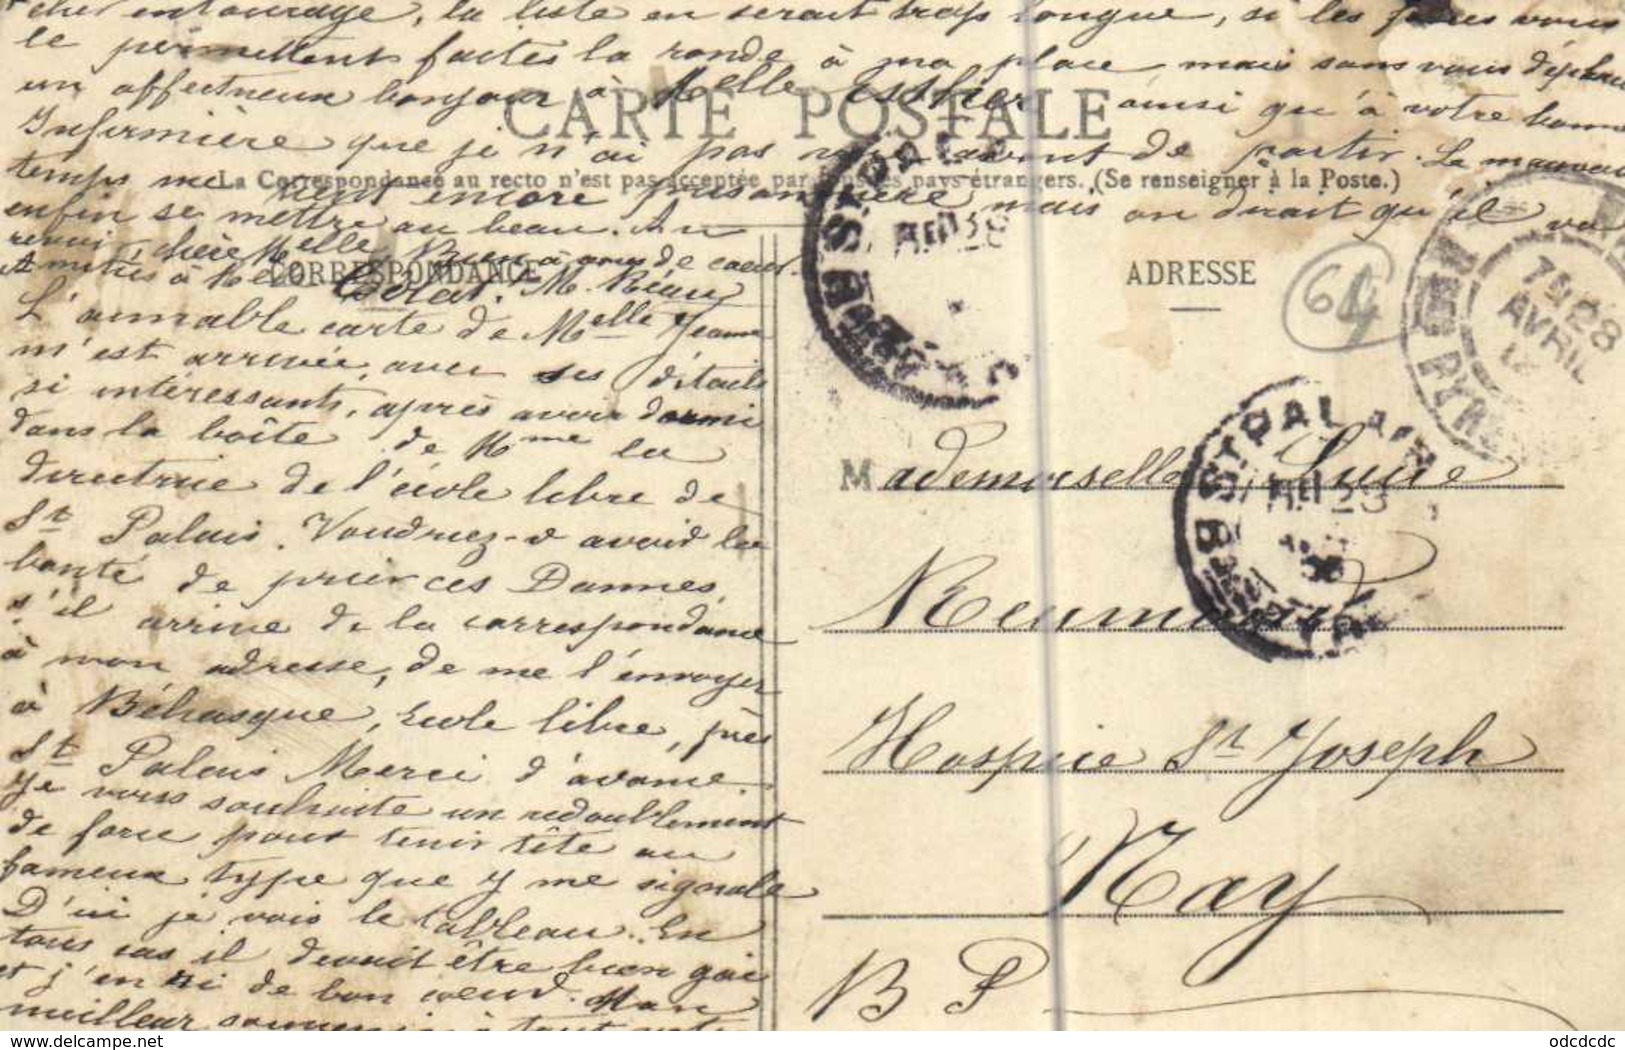 cher entourage, la liste en serait trop longue, si les
le permettent faites la ronde à ma place mais sans vous
un affectueux bonjour à Melle ainsi qu'à votre bonne
Infirmière que je n'ai pas avant de partir. Le mauvais
temps me tient encore prisonnière mais on dirait qu'il va
enfin se mettre au beau. Au
revoir, chère Melle, à vous de coeur.
Amitiés à Melle M.
CARTE POSTALE
La Correspondance au recto n'est pas acceptée par tous les pays étrangers. (Se renseigner à la Poste.)
CORRESPONDANCE
L'aimable carte de Melle Jeanne
m'est arrivée, avec ses détails
si intéressants, après avoir dormi
dans la boîte de Mme la
directrice de l'école libre de
St Palais. Voudriez-v avoir la
bonté de prier ces Dames,
s'il arrive de la correspondance
à mon adresse, de me l'envoyer
à Béhasque, école libre, près
St Palais Merci d'avance.
Je vous souhaite un redoublement
de force pour tenir tête au
fameux type que v me signale
D'ici je vois le tableau. En
tous cas il devait être bien gai
et j'en ri de bon coeur. Mon
meilleur souvenir à tout votre
ADRESSE
64
7 28
AVRIL
ST PALAIS
Mademoiselle
Hospice St Joseph
Nay
B P
www.delcampe.net
odcdcdc